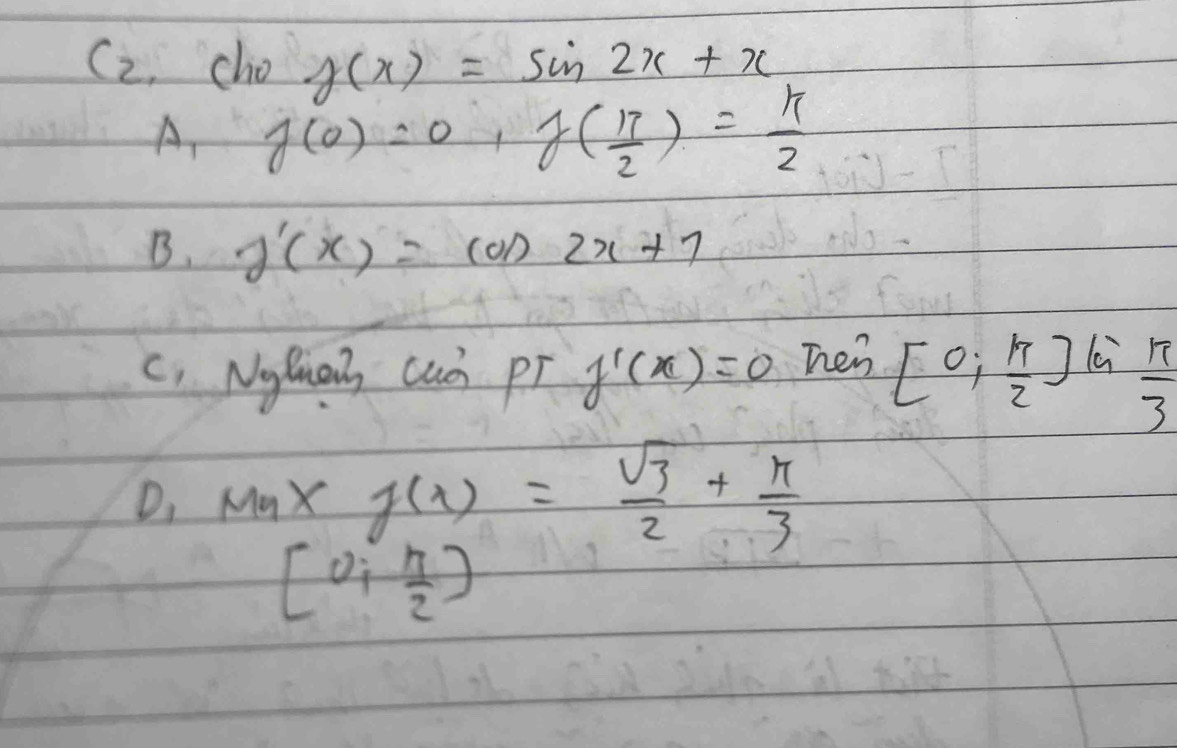 C2, Cho f(x) = sin 2x + x
A, f(0) = 0, f(π/2) = π/2
B, f'(x) = cos 2x + 1
C, Nghiệm của PT f'(x) = 0 trên [0; π/2] là π/3
D, Max f(x) = √3/2 + π/3
[0; π/2]